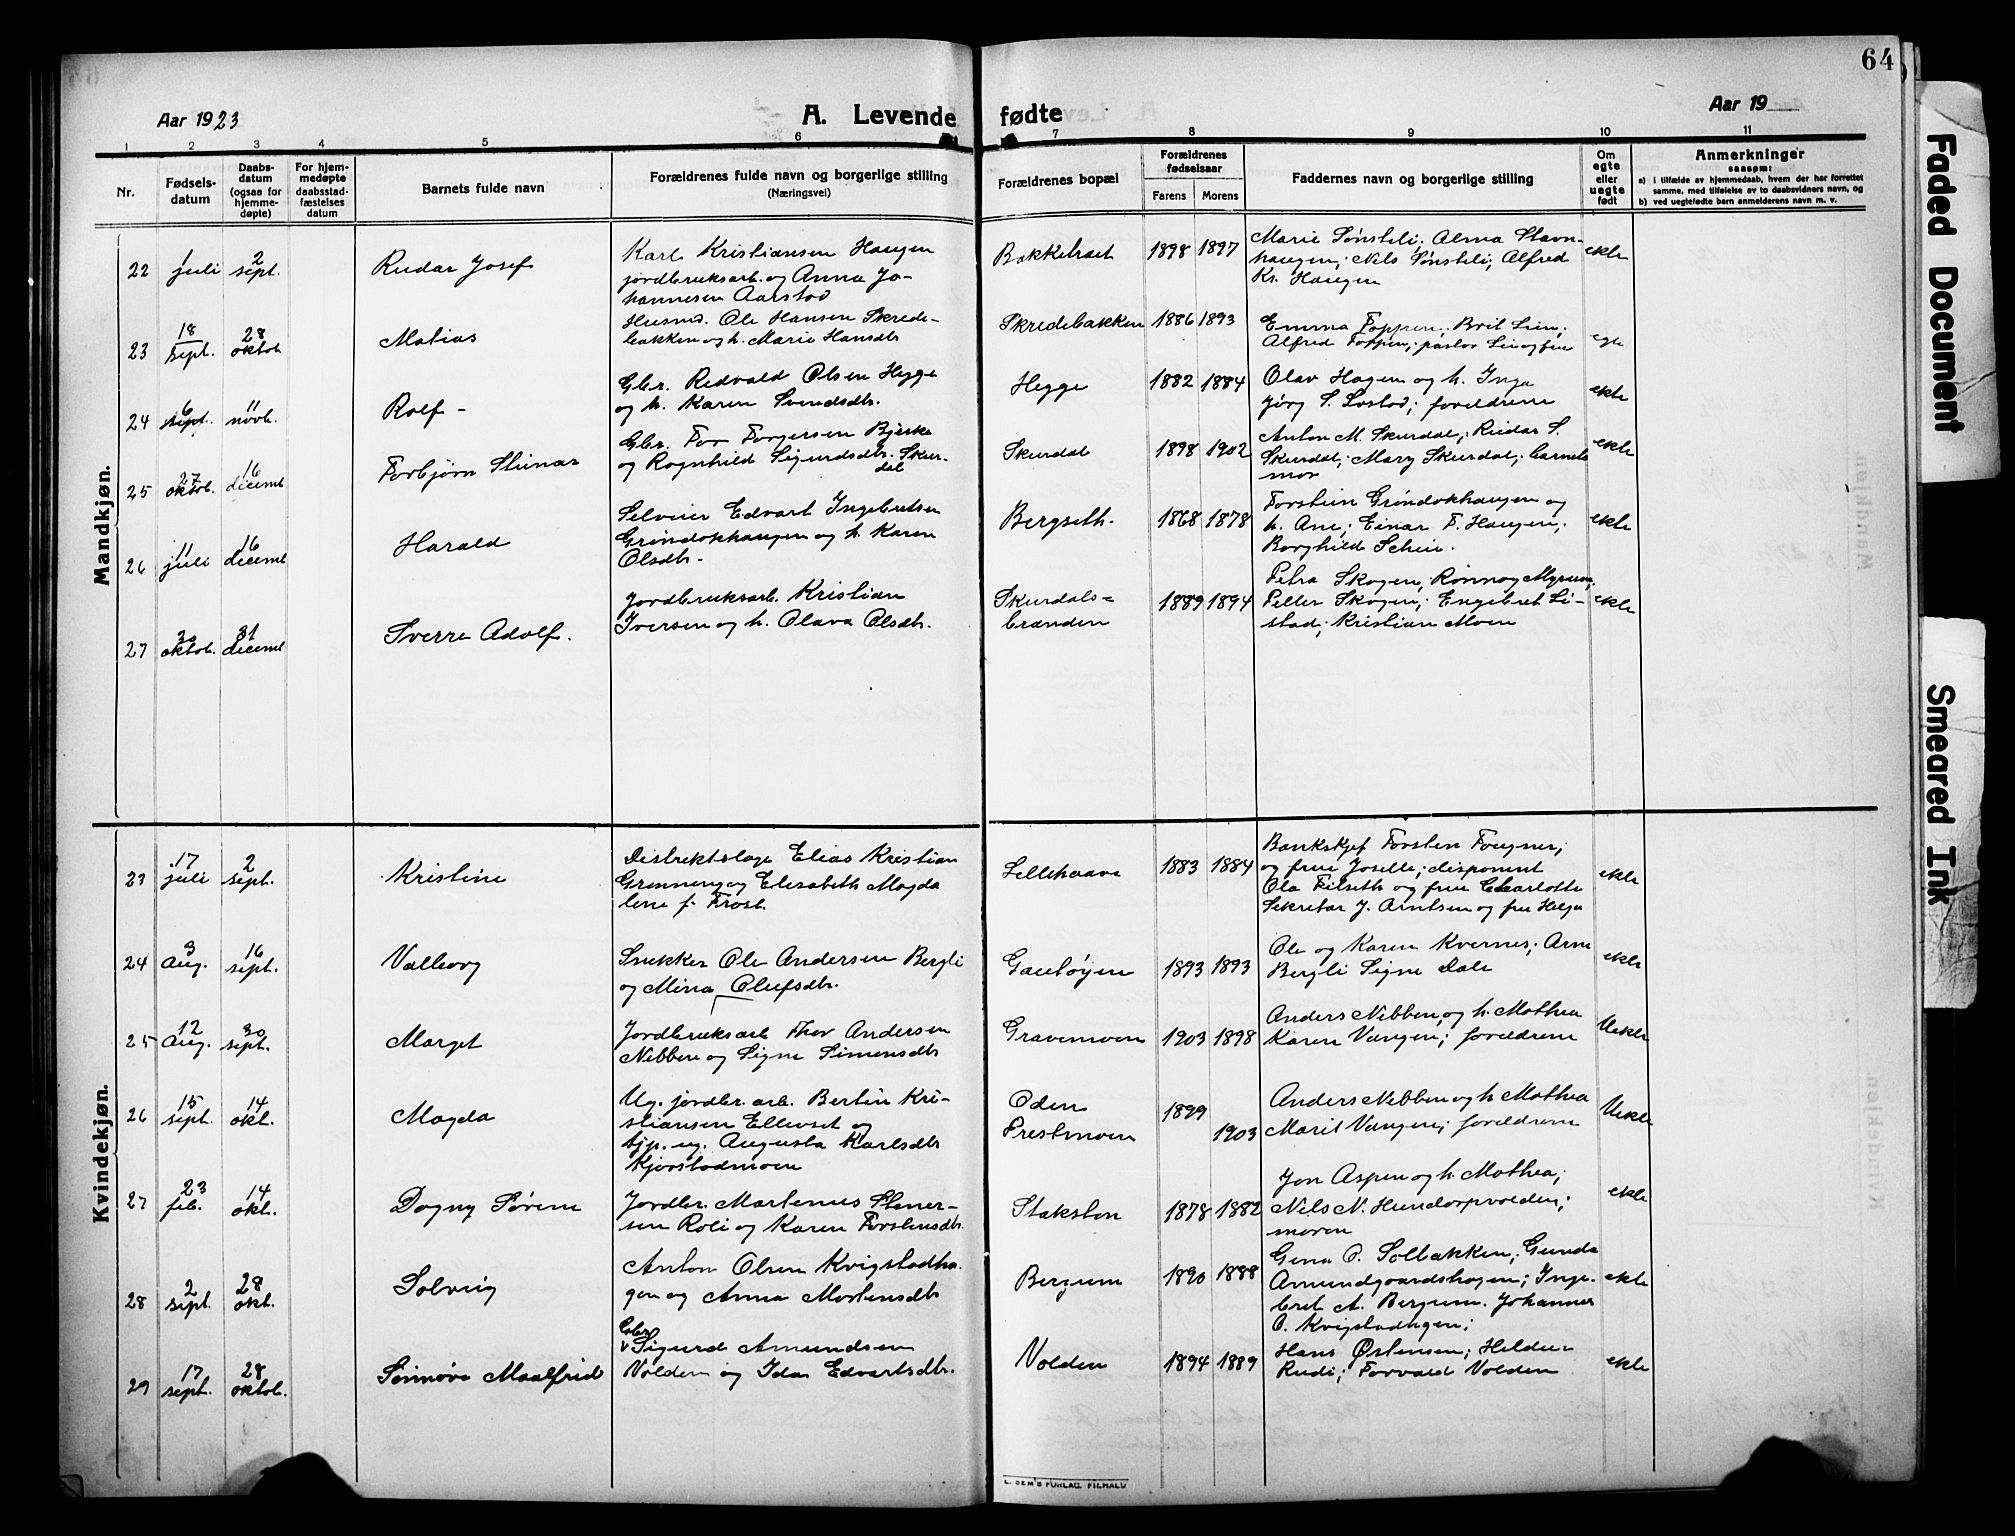 64
Aar 1923
A. Levende fødte
Aar 19
1 2 3 4 5 6 7 8 9 10 11
Nr.
Fødsels-
datum
Daabs-
datum
(ogsaa for
hjemme-
døpte)
For hjem-
medøpte
daabsstad-
fæstelses
datum
Barnets fulde navn
Forældrenes fulde navn og borgerlige stilling
(Næringsvei)
Forældrenes bopæl
Forældrenes
fødselsaar
Farens Morens
Faddernes navn og borgerlige stilling
Om
egte
eller
uegte
født
Anmerkninger
saasom:
a) i tilfælde av hjemmedaab, hvem der har forrettet
samme, med tilføielse av to daabsvidners navn, og
b) ved uegtefødte barn anmelderens navn m. v.
Mandkjøn.
22 1 juli 2 sept. Reidar Josef
Karl Kristiansen Haugen
jordbruksarb. og Anna Jo-
hannesen Aarstad
Bakketraet 1898 1897
Marie Sønsteli; Alma Stavn-
haugen; Nils Sønsteli; Alfred
Kr. Haugen
ekte
23 18 sept. 28 oktob. Matias
Husmd. Ole Hansen Skrede-
bakken og h. Marie Hansdtr
Skredebakken 1886 1893
Emma Toppen; Brit Lien;
Alfred Toppen; pastor Lie og frue
egte
24 6 sept. 11 novb. Rolf -
Gbr. Redvald Olsen Hegge
og h. Karen Svendsdtr.
Hegge 1882 1884
Olav Hagen og h. Inga
Jørg S. Lostad; foreldrene
ekte
25 27 oktob. 16 decemb Torbjørn Steinar
Gbr. Tor Torgersen Bjerke
og Ragnhild Sigurdsdtr. Skur-
dal
Skurdal 1898 1902
Anton M. Skurdal; Reidar S.
Skurdal; Mary Skurdal; barnets
mor
ekte
26 11 juli 16 decemb Harald
Selveier Edvart Ingebretsen
Grøndokkhaugen og h. Karen
Olsdtr.
Bergseth. 1868 1878
Torstein Grøndokkhaugen og
h. Ane; Einar T. Haugen;
Borghild Scheie.
ekte
27 30 oktob. 31 decemb Sverre Adolf.
Jordbruksarb. Kristian
Iversen og h. Olava Olsdtr.
Skurdals=
brænden 1889 1894
Petra Skogen; Rønnog Myrum;
Petter Skogen; Engebret Li-
stad; Kristian Moen
ekte
Kvindekjøn.
23 17 juli 2 sept. Kristine
Distriktslæge Elias Kristian
Grønneng og Elisabeth Magda
lene f. Frost.
Lillehaave 1883 1884
Bankskjef Torsten Fougner;
og frue Joselle; disponent
Ola Filseth og frue Charlotte
Sekretær J. Arntsen og frue Helga
ekte
24 3 Aug. 16 sept. Valborg
Snekker Ole Andersen Bergli
og Mina Olufsdtr.
Gautøyen 1893 1893
Ole og Karen Kvernes; Arne
Bergli Signe Dale
ekte
25 12 Aug. 30 sept. Marget
Jordbruksarb Thor Andersen
Nibben og Signe Simensdtr
Gravemoen 1903 1898
Anders Nibben og h. Mathea
Karen Vangen; foreldrene
Uekte
26 15 sept. 14 okt. Magda
Ug. jordbr. arb. Bertin Kri-
stiansen Ellevset og
tjp. ug. Augusta Karlsdtr
Kjørstadmoen
Oden
Prestmoen 1899 1903
Anders Nibben og h Mathea
Marit Vangen; foreldrene
Uekte
27 23 feb. 14 okt. Dagny Sørine
Jordbr. Martenus Stener-
sen Roli og Karen Torstensdtr.
Stakston 1878 1882
Jon Aspen og h. Mathea;
Nils N. Hundorpvolden;
moren
ekte
28 2 sept. 28 okt. Solveig
Anton Olsen Kvigstadha-
gen og Anna Mortensdtr
Bergum 1890 1888
Gina O. Solbakken; Gunda
Amundgaardshagen; Inge-
bret A. Bergum. Johannes
O. Kvigstadhagen;
ekte
29 17 sept. 28 oktob. Sønnøve Maalfrid
Gbr
v Sigurd Amundsen
Volden og Ida Edvartsdtr.
Volden 1894 1889
Hans Østensen; Helder
Rudi; Torvald Volden
ekte
L. SEM'S FORLAG, FR.HALD
Faded Document
Smeared Ink